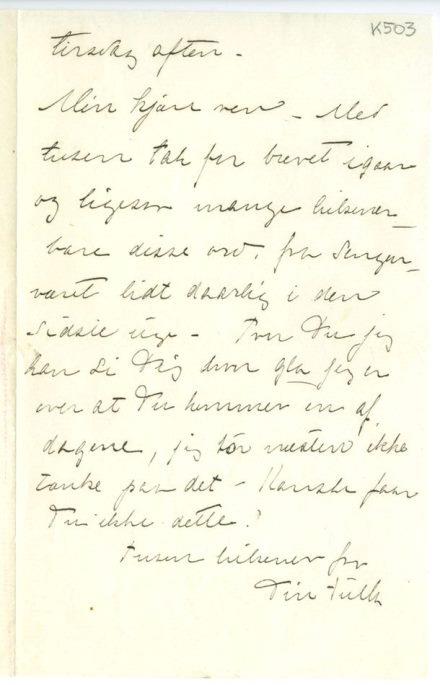 K503
tirsdag aften –
Min kjære ven – Med
tusen tak for brevet igaar
og ligesaa mange hilsener –
bare disse ord, fra Sengen –
været lidt daarlig i den
sidste uge – Tror Du jeg
kan si Dig hvor gla jeg er
over at Du kommer en af
dagene, jeg tør næsten ikke
tænke paa det – Kanske faar
Du ikke dette?
Tusen hilsener fra
Din Tulla